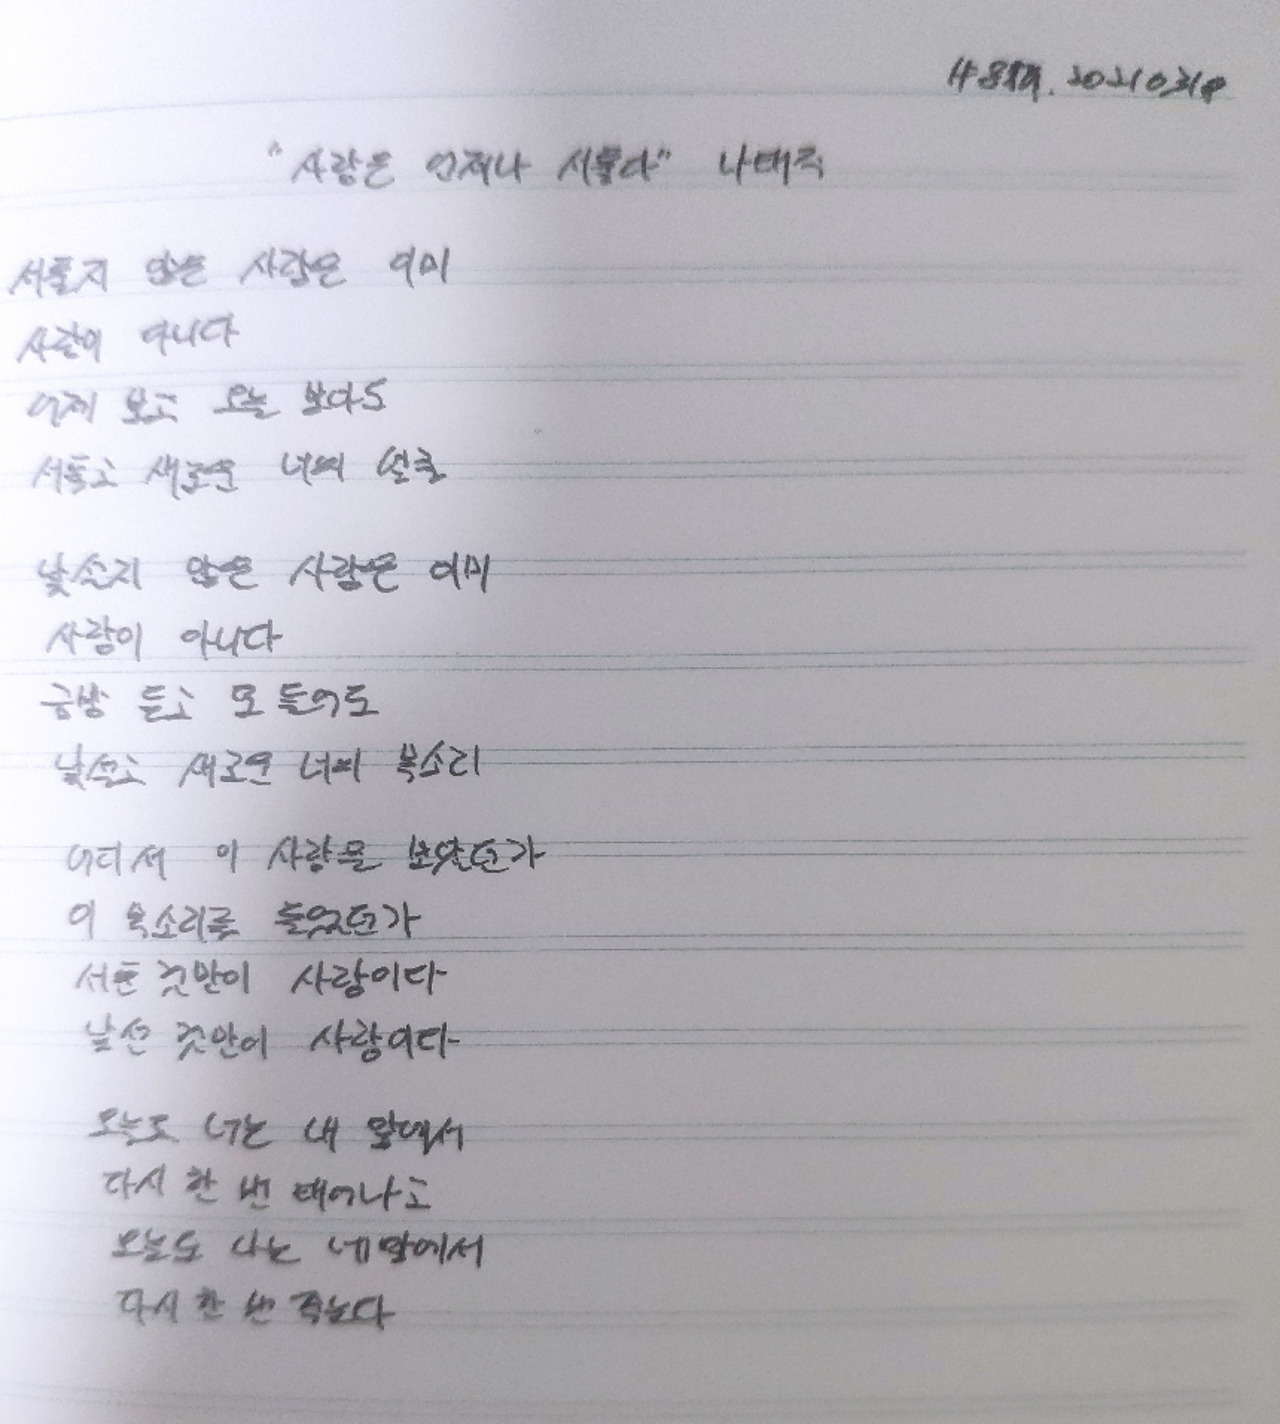 #8책. 20210318
"사랑은 언제나 서툴다" 나태주
서툴지 않은 사랑은 이미
사랑이 아니다
어제 보고 오늘 보아도
서툴고 새로운 너의 얼굴
낯설지 않은 사랑은 이미
사랑이 아니다
금방 듣고 또 들어도
낯설고 새로운 너의 목소리
어디서 이 사람을 보았던가
이 목소리를 들었던가
서툰 것만이 사랑이다
낯선 것만이 사랑이다
오늘도 너는 내 앞에서
다시 한 번 태어나고
오늘도 나는 네 앞에서
다시 한 번 죽는다